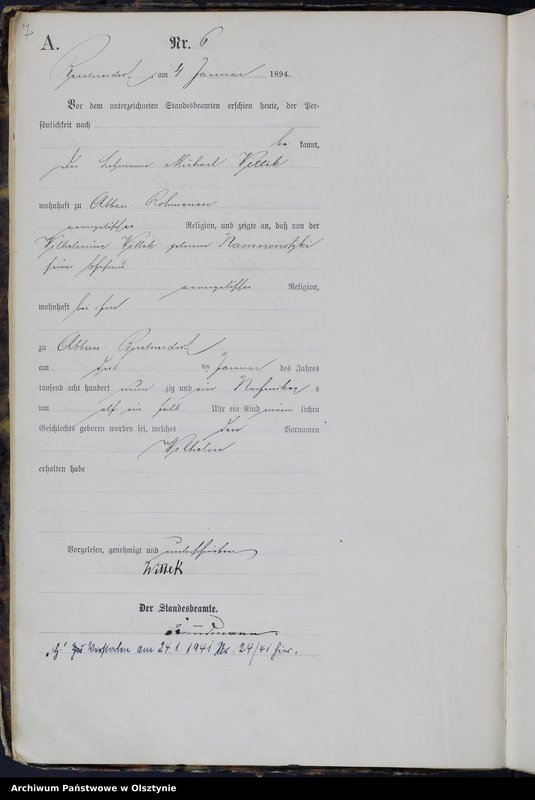 7
A.
Nr. 6
am 4 Januar 1894.
Vor dem unterzeichneten Standesbeamten erschien heute, der Per-
sönlichkeit nach
be kannt,
Michael Wittek
wohnhaft zu Abbau
evangelischer Religion, und zeigte an, daß von der
Wilhelmine Wittek geborene
seiner Ehefrau
evangelischer Religion,
wohnhaft bei ihm
zu Abbau
am ten Januar des Jahres
tausend acht hundert neun zig und vier Nachmittags
um elf ein halb Uhr ein Kind männ lichen
Geschlechts geboren worden sei, welches den Vornamen
Wilhelm
erhalten habe
Vorgelesen, genehmigt und unterschrieben
Wittek
Der Standesbeamte.
Verstorben am 24.1.1941 Nr. 24/41 hier.
Archiwum Państwowe w Olsztynie